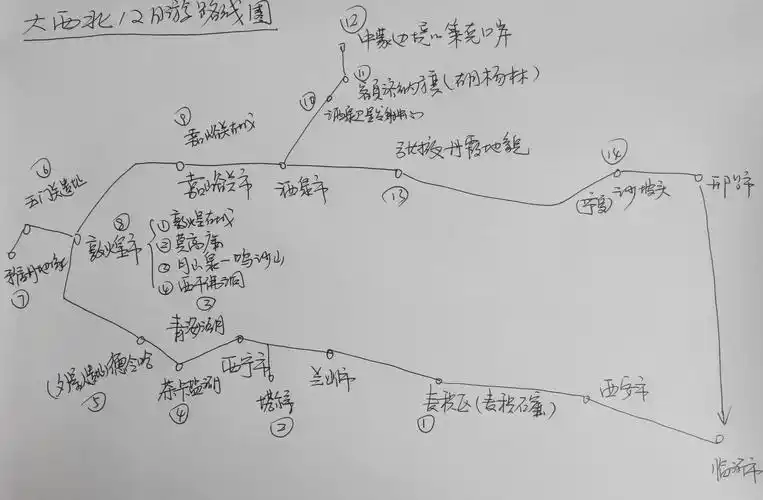 大西北12日游路线图
⑫
中蒙边境口策克口岸
⑪
额济纳旗(胡杨林)
⑩
酒泉卫星发射中心
⑨
嘉峪关古城
嘉峪关市
酒泉市
张掖丹霞地貌
⑬
⑭
(宁夏)沙坡头
⑥
玉门关遗址
⑦
敦煌市
⑧
①敦煌古城
②莫高窟
③月山泉一鸣沙山
④西千佛洞
③
青海湖
西宁市
塔尔寺
②
兰州市
德令哈
⑤
茶卡盐湖
④
麦积区(麦积石窟)
①
西安市
临汾市